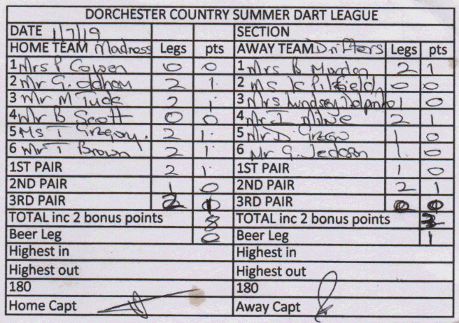 DORCHESTER COUNTRY SUMMER DART LEAGUE
DATE 1/7/19 SECTION
HOME TEAM Madness Legs pts AWAY TEAM Drifters Legs pts
1 Mrs P Cowen 0 0 1 Mrs B 2 1
2 Mr G. Oldham 2 1 2 Ms K 0 0
3 Mr M Tuck 2 1 3 Mrs Lindsey 1 0
4 Mr B Scott 0 0 4 Mr I Milne 2 1
5 Ms T Gregory 2 1 5 Mr D 1 0
6 Mr T Brown 2 1 6 Mr G. Jackson 1 0
1ST PAIR 2 1 1ST PAIR 1 0
2ND PAIR 1 0 2ND PAIR 2 1
3RD PAIR 2 1 3RD PAIR 0 0
TOTAL inc 2 bonus points 8 TOTAL inc 2 bonus points 3
Beer Leg 0 Beer Leg 1
Highest in Highest in
Highest out Highest out
180 180
Home Capt Away Capt